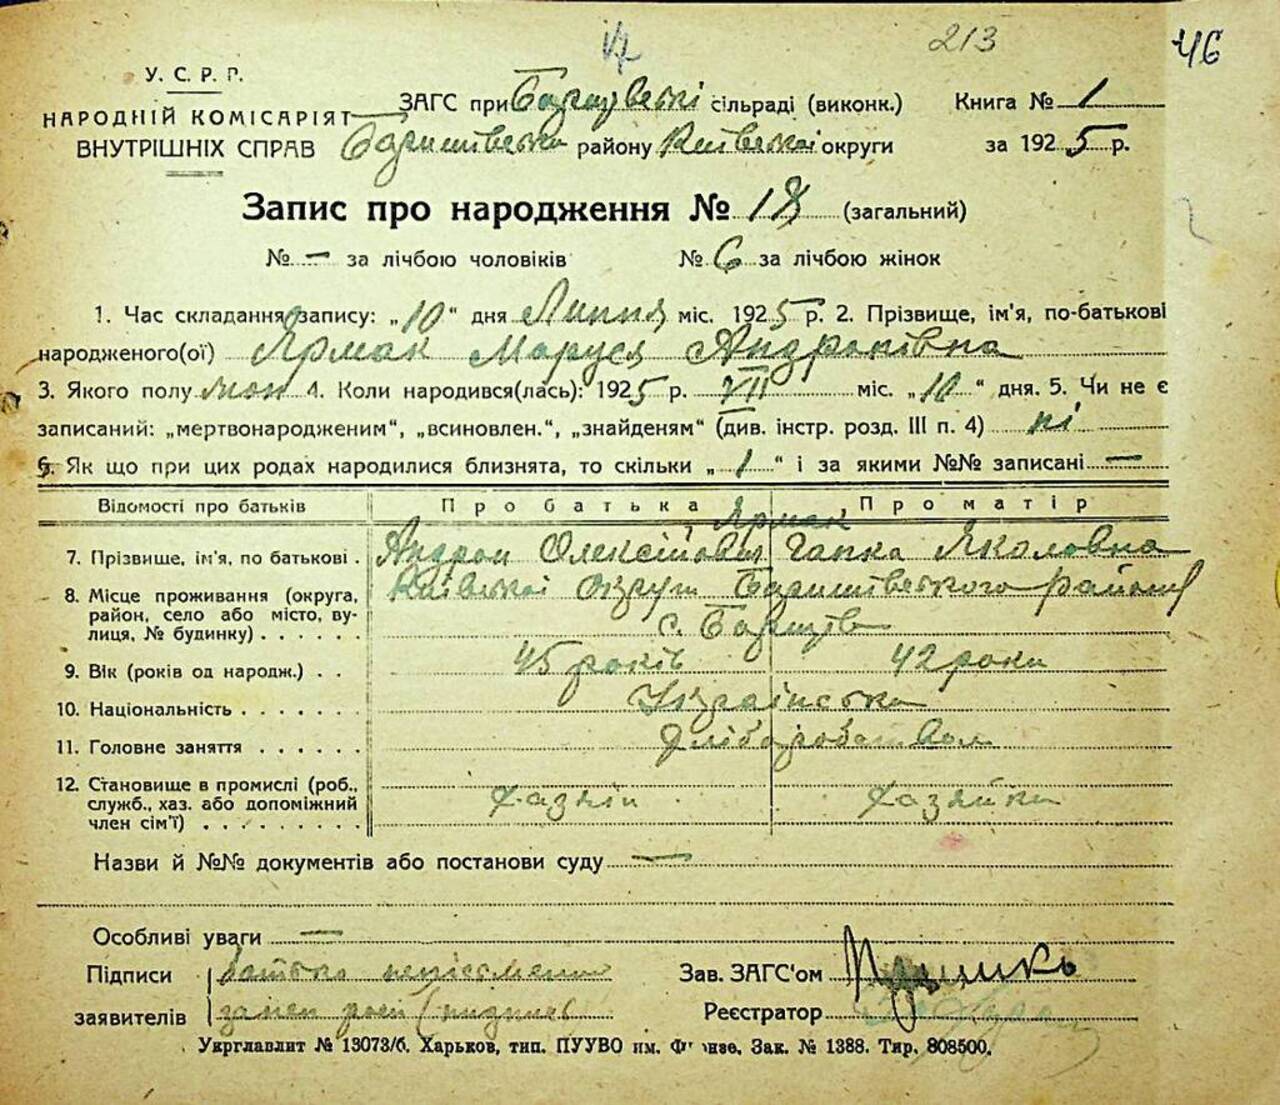 213 46
У. С. Р. Р.
НАРОДНІЙ КОМІСАРІЯТ
ВНУТРІШНІХ СПРАВ
ЗАГС при сільраді (виконк.) Книга № 1
Баришівськ району Київської округи за 1925 р.
Запис про народження № 18 (загальний)
№ — за лічбою чоловіків № 6 за лічбою жінок
1. Час складання запису: „10“ дня Липня міс. 1925 р. 2. Прізвище, ім'я, по-батькові
народженого(ої) Ярмак Маруся Андроківна
3. Якого полу жон 4. Коли народився(лась): 1925 р. VII міс. „10“ дня. 5. Чи не є
записаний: „мертвонародженим“, „всиновлен.“, „знайденям“ (див. інстр. розд. III п. 4) ні
6. Як що при цих родах народилися близнята, то скільки „1“ і за якими №№ записані —
Відомості про батьків Про батька Про матір
Ярмак
7. Прізвище, ім'я, по батькові . Андрон Олексійович Гапка Яколовна
8. Місце проживання (округа, Київської округи Баришівського району
район, село або місто, ву- с.
лиця, № будинку) . . . . . .
9. Вік (років од народж.) . . 45 років 42 роки
10. Національність . . . . . . . Українська
11. Головне заняття . . . . . . Хліборобством
12. Становище в промислі (роб., Хазяін Хазяйка
служб., хаз. або допоміжний
член сім'ї) . . . . . . . .
Назви й №№ документів або постанови суду —
Особливі уваги —
Підписи батько неписьменний Зав. ЗАГС'ом
заявителів Реєстратор
Укрглавлит № 13073/б. Харьков, тип. ПУУВО им. Фрунзе. Зак. № 1388. Тир. 808500.